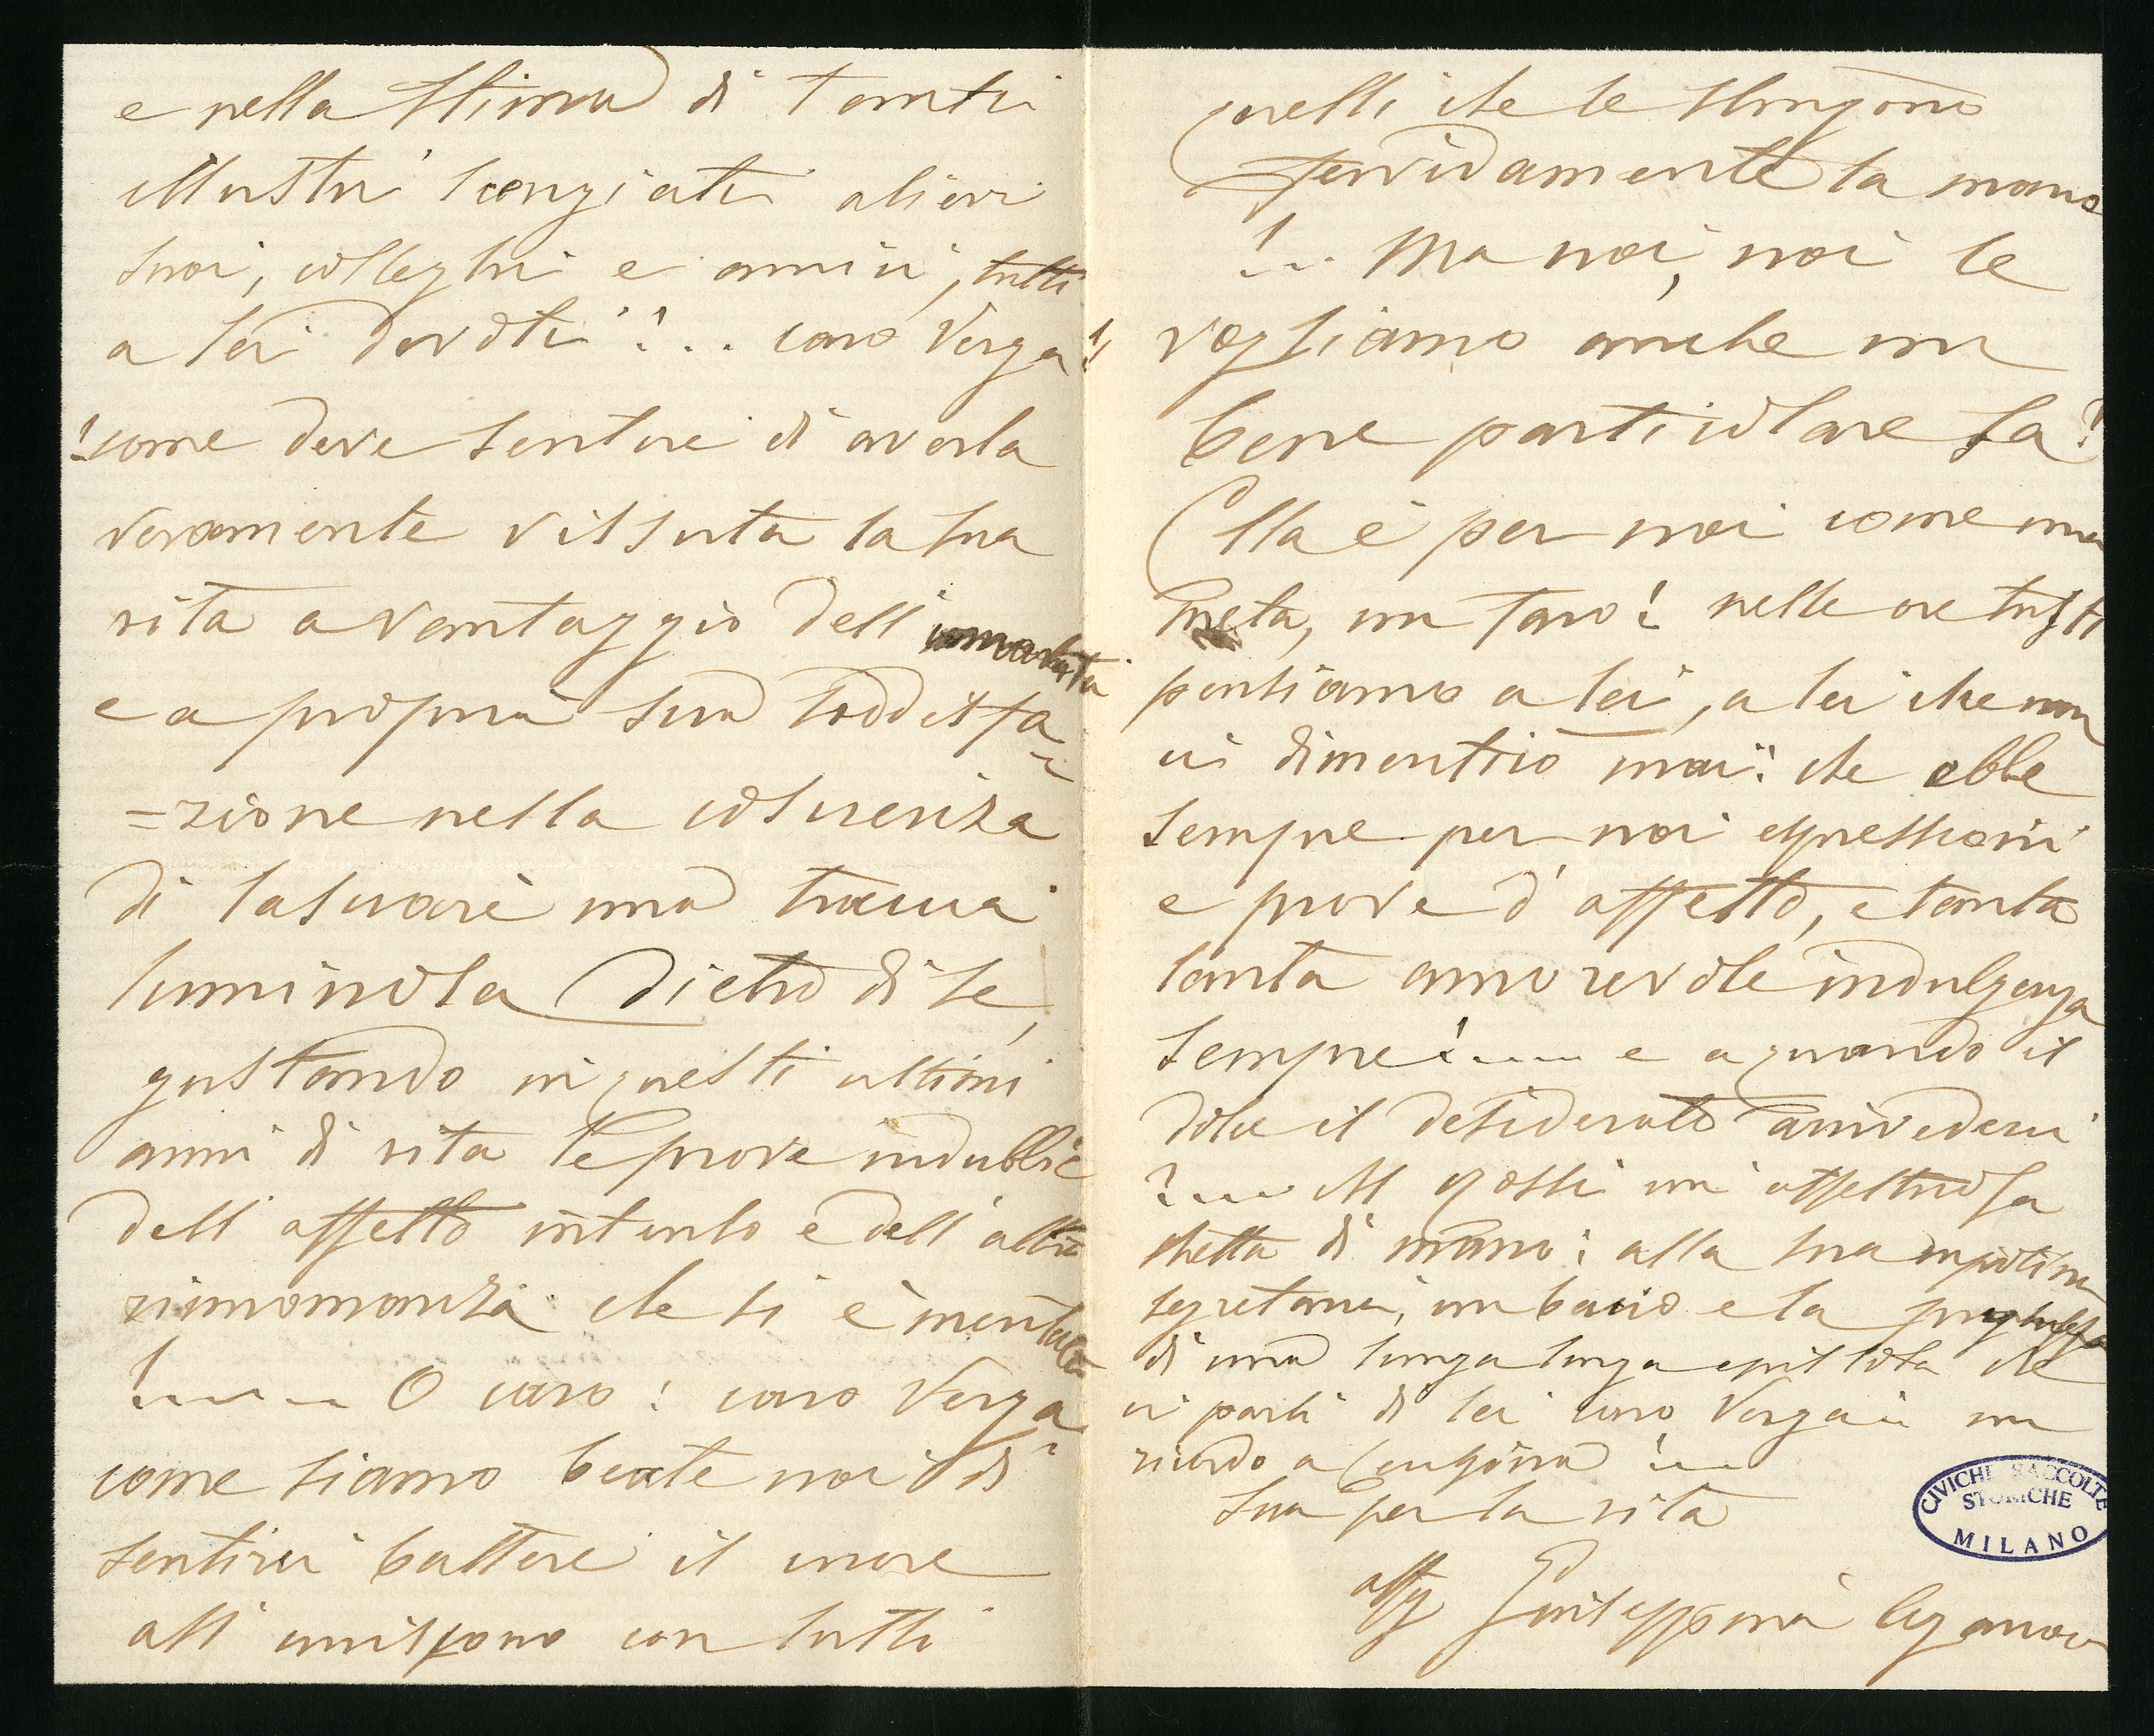 e nella stima di tanti
illustri scenziati allievi
suoi, colleghi e amici, tutti
a lei devoti!... caro Verga!!
!come deve sentire di averla
veramente vissuta la sua
vita a vantaggio dell'umanità
e a propria sua soddisfa=
=zione nella coscienza
di lasciare una traccia
luminosa dietro di se,
gustando in questi ultimi
anni di vita le prove indubbie
dell'affetto intenso e dell'alta
rinnomanza che si è meritata
!.... O caro! caro Verga
come siamo beate noi di
sentirci battere il cuore
all'unissono con tutti
quelli che le stringono
fervidamente la mano
!... Ma noi, noi le
vogliamo anche un
bene particolare sa!
Ella è per noi come una
meta, un faro! nelle ore tristi
pensiamo a lei, a lei che non
ci dimenticò mai! che ebbe
sempre per noi espressioni
e prove d'affetto, e tanta
tanta amorevole indulgenza
sempre!.... e a quando il
dolce il desiderato arrivederci
?.... Al Golgi un'affettuosa
stretta di mano: alla sua
segretaria, un bacio e la preghiera
di una lunga lunga epistola che
ci parli di lei caro Verga: un
ricordo a
sua per la vita
aff Giuseppina
CIVICHE RACCOLTE
STORICHE
MILANO